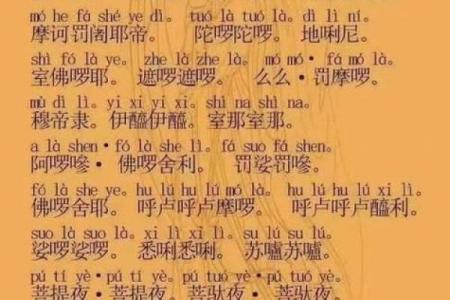 mó hē fá shé yé dì。 tuó là tuó là。dì lì ní。
摩诃罚阇耶帝。 陀啰陀啰。 地唎尼。
shì fó là yé。 zhē là zhē là。 mó mó· fá mó là。
室佛啰耶。 遮啰遮啰。 么么·罚摩啰。
mù dì lì。yi xi yi xi。shì nà shì na。
穆帝隶。伊醯伊醯。室那室那。
a là shen·fó là shě lì。fá suo fá shen。
阿啰嘇·佛啰舍利。罚娑罚嘇。
fó là she ye。hu lú hu lú mó là。 hu lú hu lú xi lì。
佛啰舍耶。 呼卢呼卢摩啰。 呼卢呼卢醯利。
suo là suo là。xi lì xi lì。 su lú su lú。
娑啰娑啰。 悉唎悉唎。 苏嚧苏嚧。
pú tí yè·pú tí yè。pú tuó yè·pú tuó yè。
菩提夜·菩提夜。菩驮夜·菩驮夜。